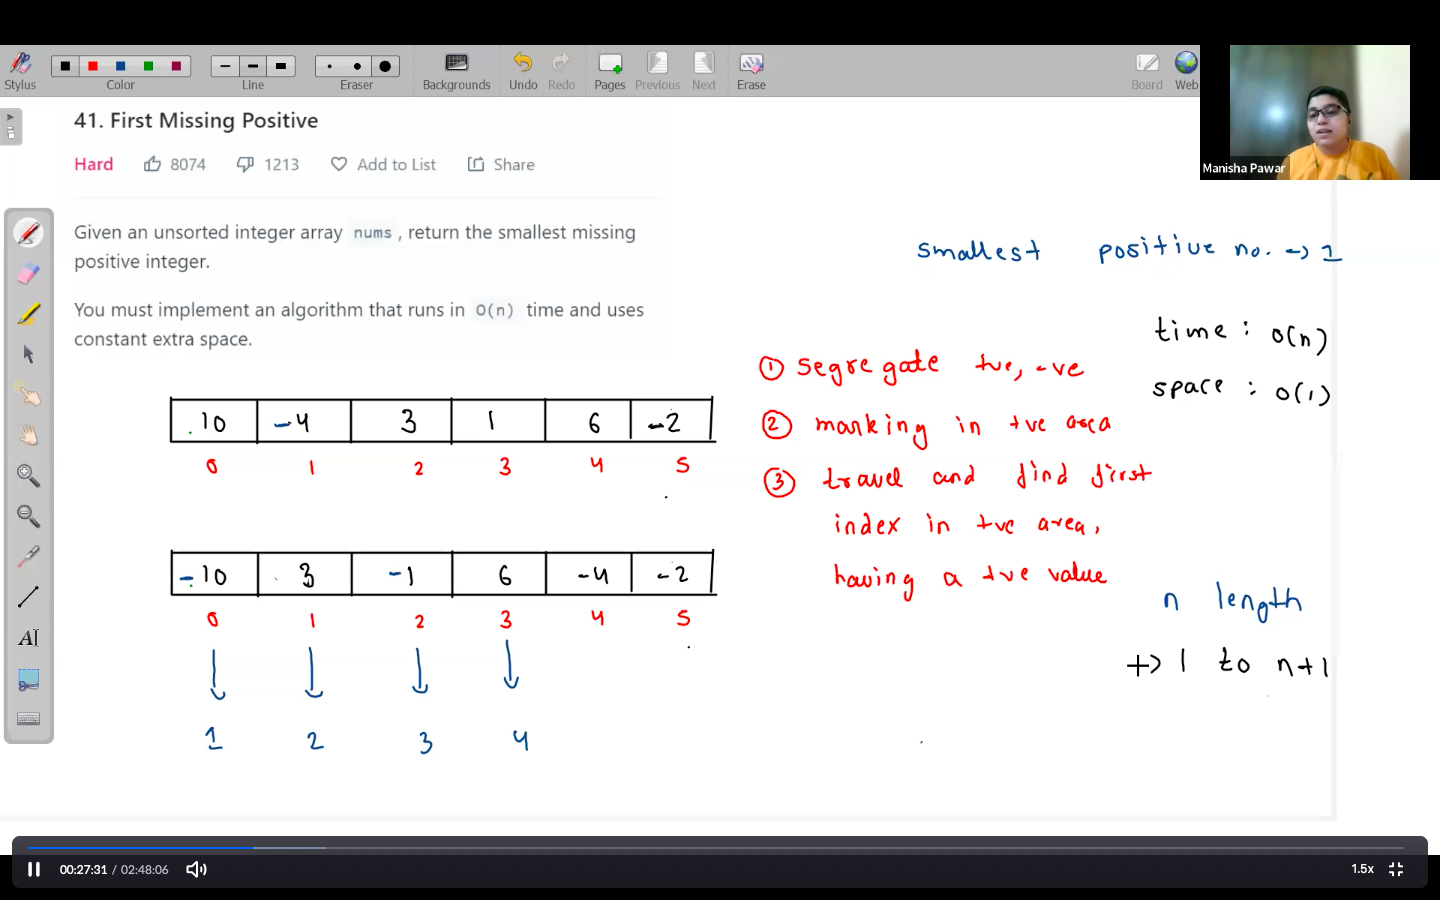 Stylus Color Line Eraser Backgrounds Undo Redo Pages Previous Next Erase Board Web
Manisha Pawar
41. First Missing Positive
Hard 8074 1213 Add to List Share
Given an unsorted integer array nums, return the smallest missing
positive integer.
You must implement an algorithm that runs in O(n) time and uses
constant extra space.
smallest positive no. -> 1
time : O(n)
space : O(1)
① segregate +ve, -ve
② marking in +ve area
③ travel and find first
index in +ve area,
having a +ve value
10 -4 3 1 6 -2
0 1 2 3 4 5
-10 3 -1 6 -4 -2
0 1 2 3 4 5
1 2 3 4
n length
+> 1 to n+1
AI
00:27:31 / 02:48:06 1.5x